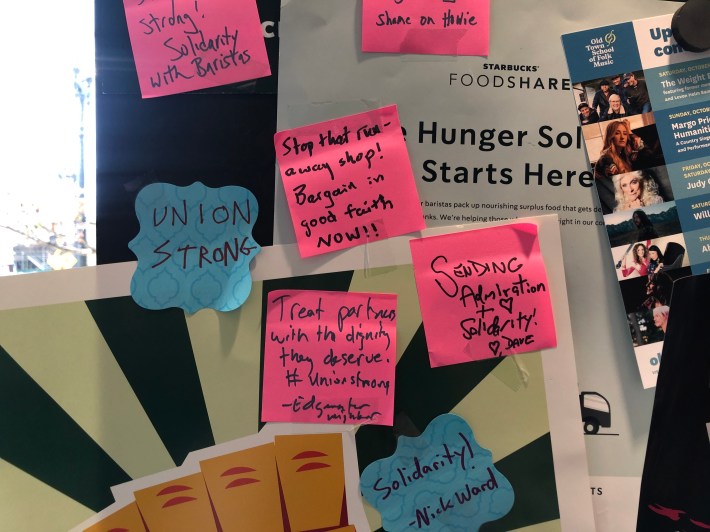 Strong!
Solidarity
with Baristas
Shame on Howie
STARBUCKS®
FOODSHARE
Hunger Sol
Starts Here
baristas pack up nourishing surplus food that gets de
We're helping those
right in our co
Stop that run-
away shop!
Bargain in
good faith
NOW!!
UNION
STRONG
SENDING
Admiration
+ ♡
Solidarity!
♡, DAVE
Treat partners
with the dignity
they deserve.
# Unionstrong
-Edgewater
neighbor
Solidarity!
-Nick Ward
Old Town
School of Folk
Music
Up
con
SATURDAY, OCTOBER
The Weight
SUNDAY, OCTO
Margo Pri
Humanitie
A Country Singe
and Performe
FRIDAY, O
SATURDAY
Judy
SATURDA
Will
THU
TS